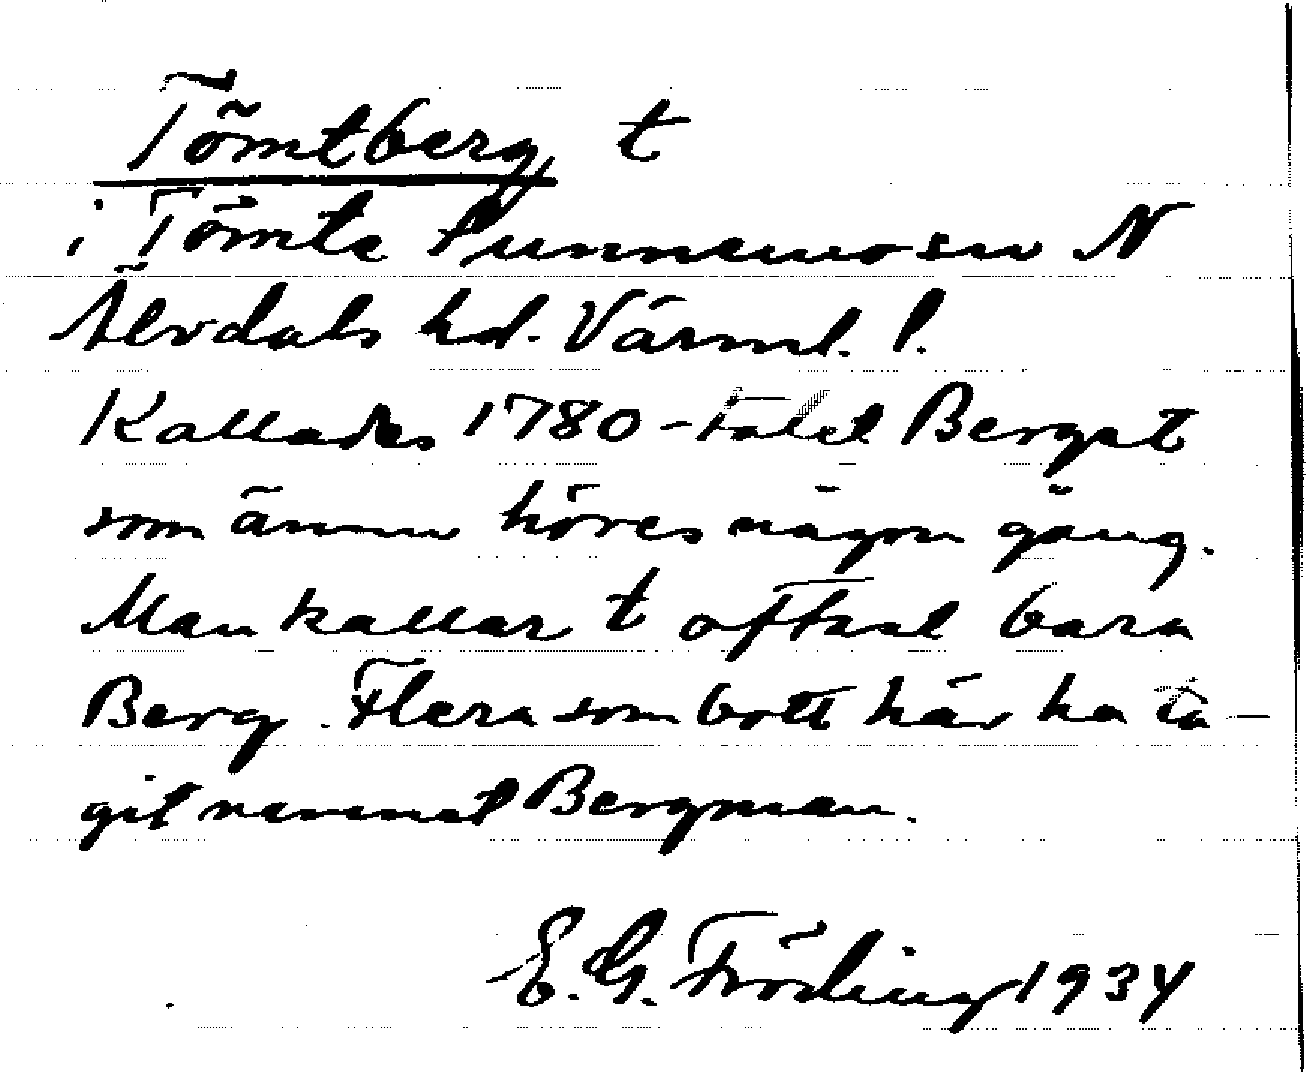 Tömtberg t
i Tömte Sunnemo sn N
Älvdals hd. Värml. l.
Kallades 1780-talet Berget
som ännu höres någon gång.
Man kallar t oftast bara
Berg. Flera som bott här ha ta-
git namnet Bergman.
E. G. Fröding 1934